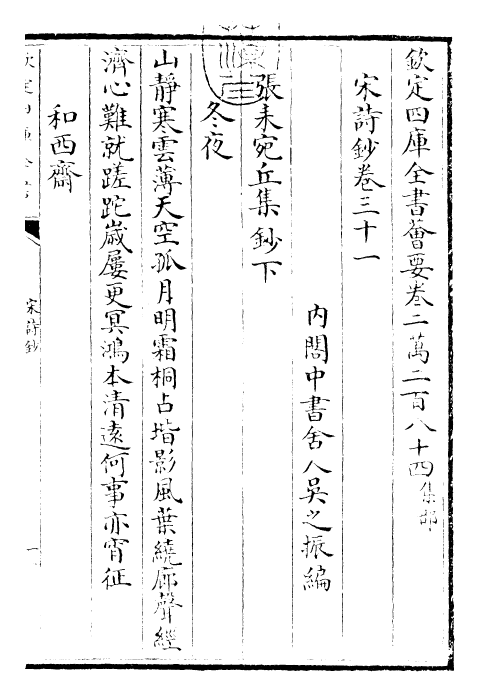 欽定四庫全書薈要卷二萬二百八十四集部
宋詩鈔卷三十一
內閣中書舍人吳之振編
張耒宛丘集鈔下
冬夜
山靜寒雲薄天空孤月明霜桐占堦影風葉繞廊聲經
濟心難就蹉跎歲屢更冥鴻本清遠何事亦宵征
和西齋
宋詩鈔
一